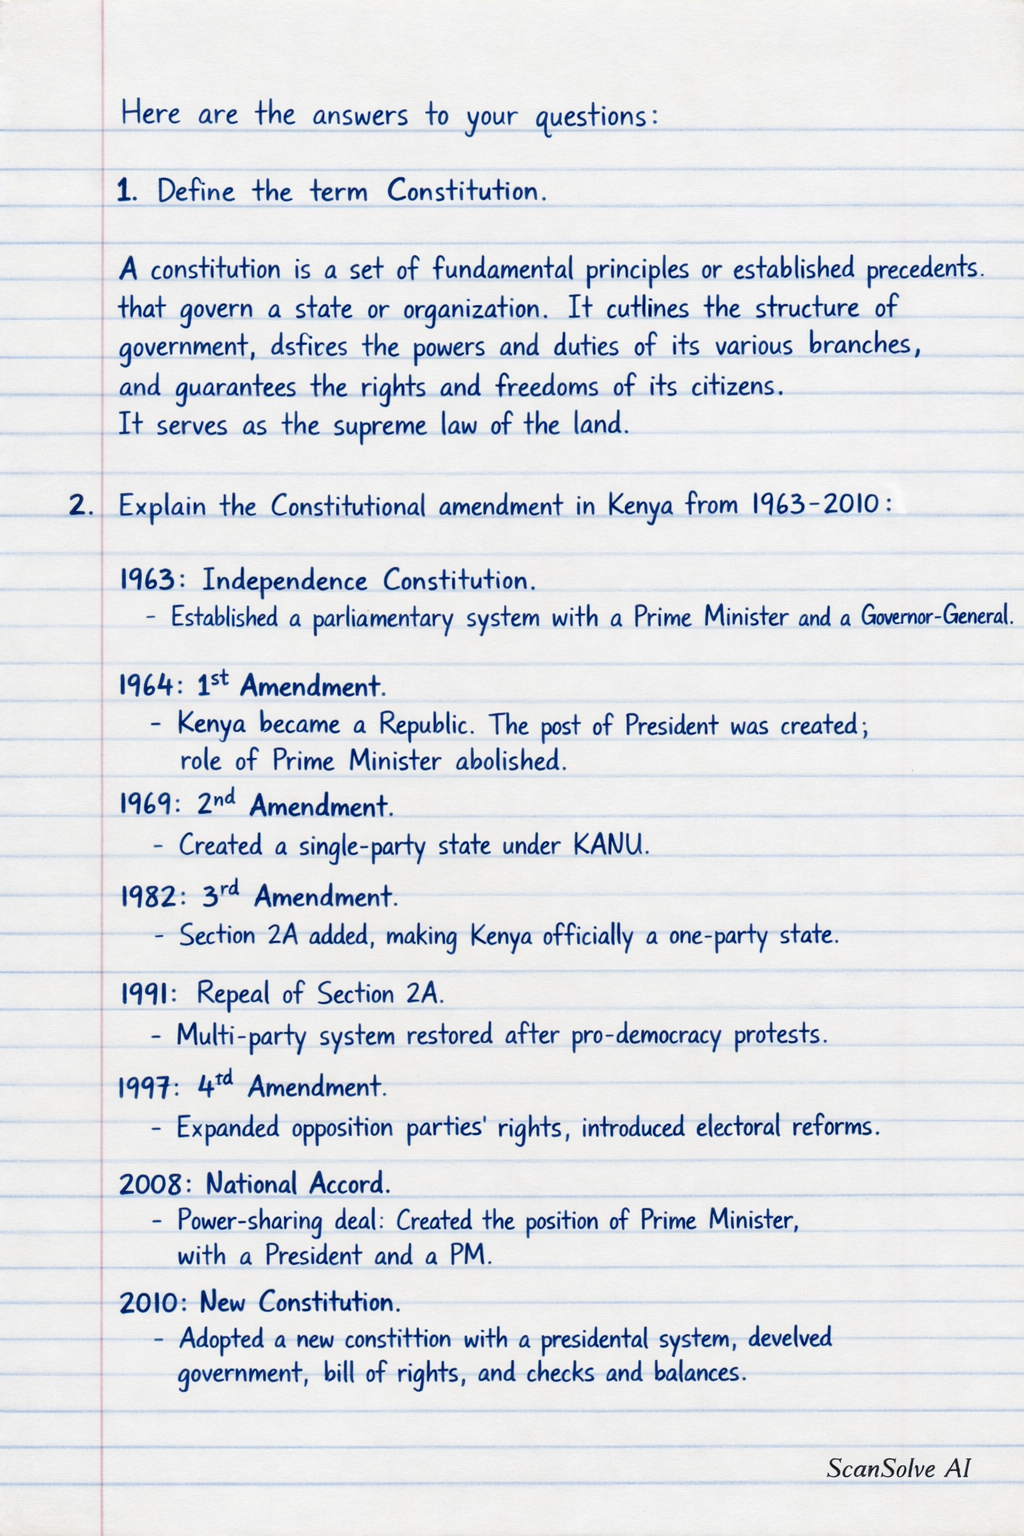 Here are the answers to your questions:
1. Define the term Constitution.
A constitution is a set of fundamental principles or established precedents.
that govern a state or organization. It cutlines the structure of
government, dsfires the powers and duties of its various branches,
and guarantees the rights and freedoms of its citizens.
It serves as the supreme law of the land.
2. Explain the Constitutional amendment in Kenya from 1963-2010:
1963: Independence Constitution.
- Established a parliamentary system with a Prime Minister and a Governor-General.
1964: 1st Amendment.
- Kenya became a Republic. The post of President was created;
role of Prime Minister abolished.
1969: 2nd Amendment.
- Created a single-party state under KANU.
1982: 3rd Amendment.
- Section 2A added, making Kenya officially a one-party state.
1991: Repeal of Section 2A.
- Multi-party system restored after pro-democracy protests.
1997: 4td Amendment.
- Expanded opposition parties' rights, introduced electoral reforms.
2008: National Accord.
- Power-sharing deal: Created the position of Prime Minister,
with a President and a PM.
2010: New Constitution.
- Adopted a new constittion with a presidental system, develved
government, bill of rights, and checks and balances.
ScanSolve AI